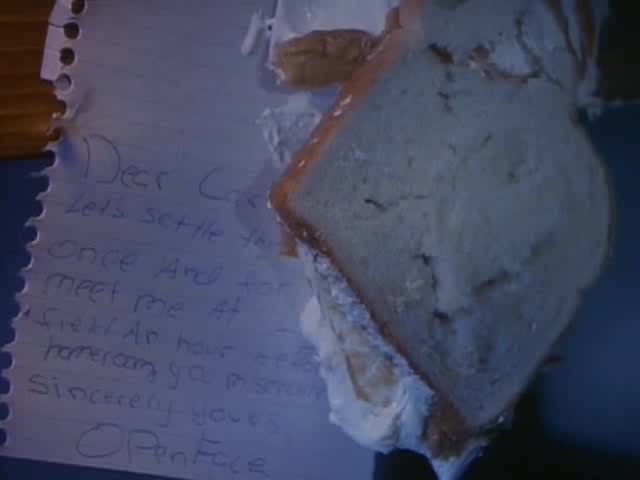 Dear
Let's settle
once And for
meet me At
field An hour
homeroom, you miserable
Sincerely yours,
OPenFace